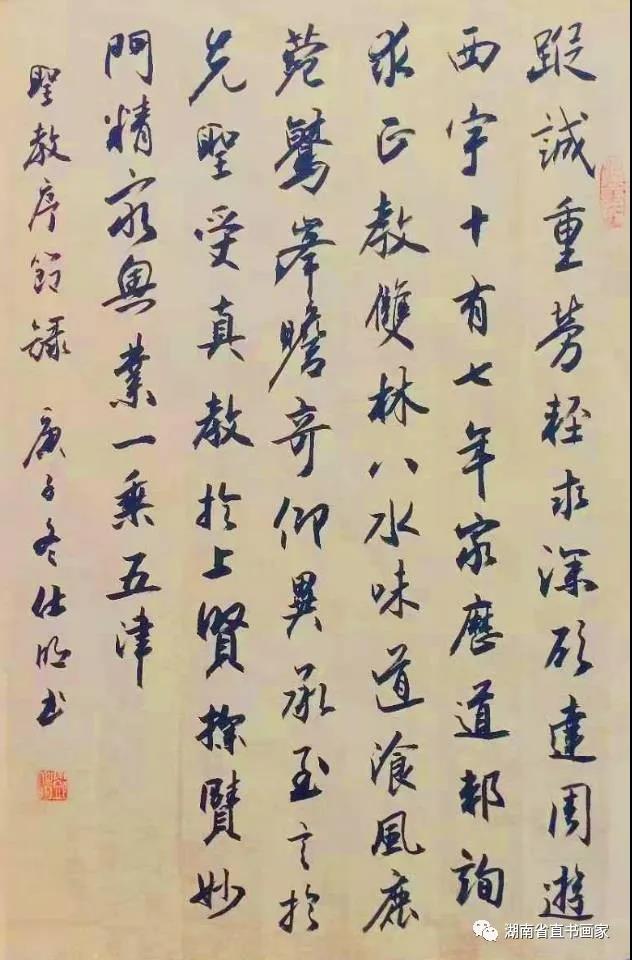 蹤誠重勞輕求深願達周遊
西宇十有七年窮歷道邦詢
求正教雙林八水味道飡風鹿
菀鷲峯瞻奇仰異承至言於
先聖受真教於上賢探賾妙
門精窮奧業一乘五津
聖教序節錄 庚子冬仕明书
湖南省直书画家